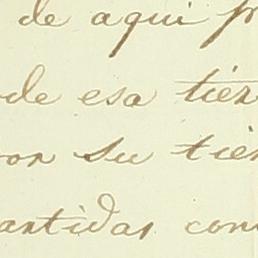 de aqui
de esa tier
su tier
antidas con